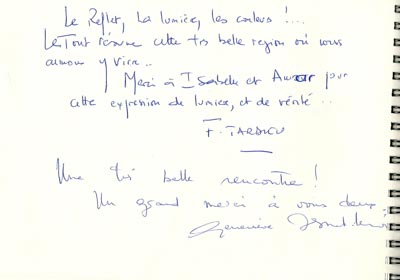 Le Reflet, La lumière, les couleurs !...
Le Tout résume cette très belle region où nous
aimons y vivre..
Merci à Isabelle et pour
cette expression de lumière, et de vérité...
F. TARDIEU
Une très belle rencontre !
Un grand merci à vous deux,
Geneviève